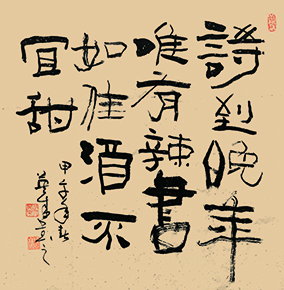 詩到晚年
唯有辣書
如佳酒不
宜甜
甲午年